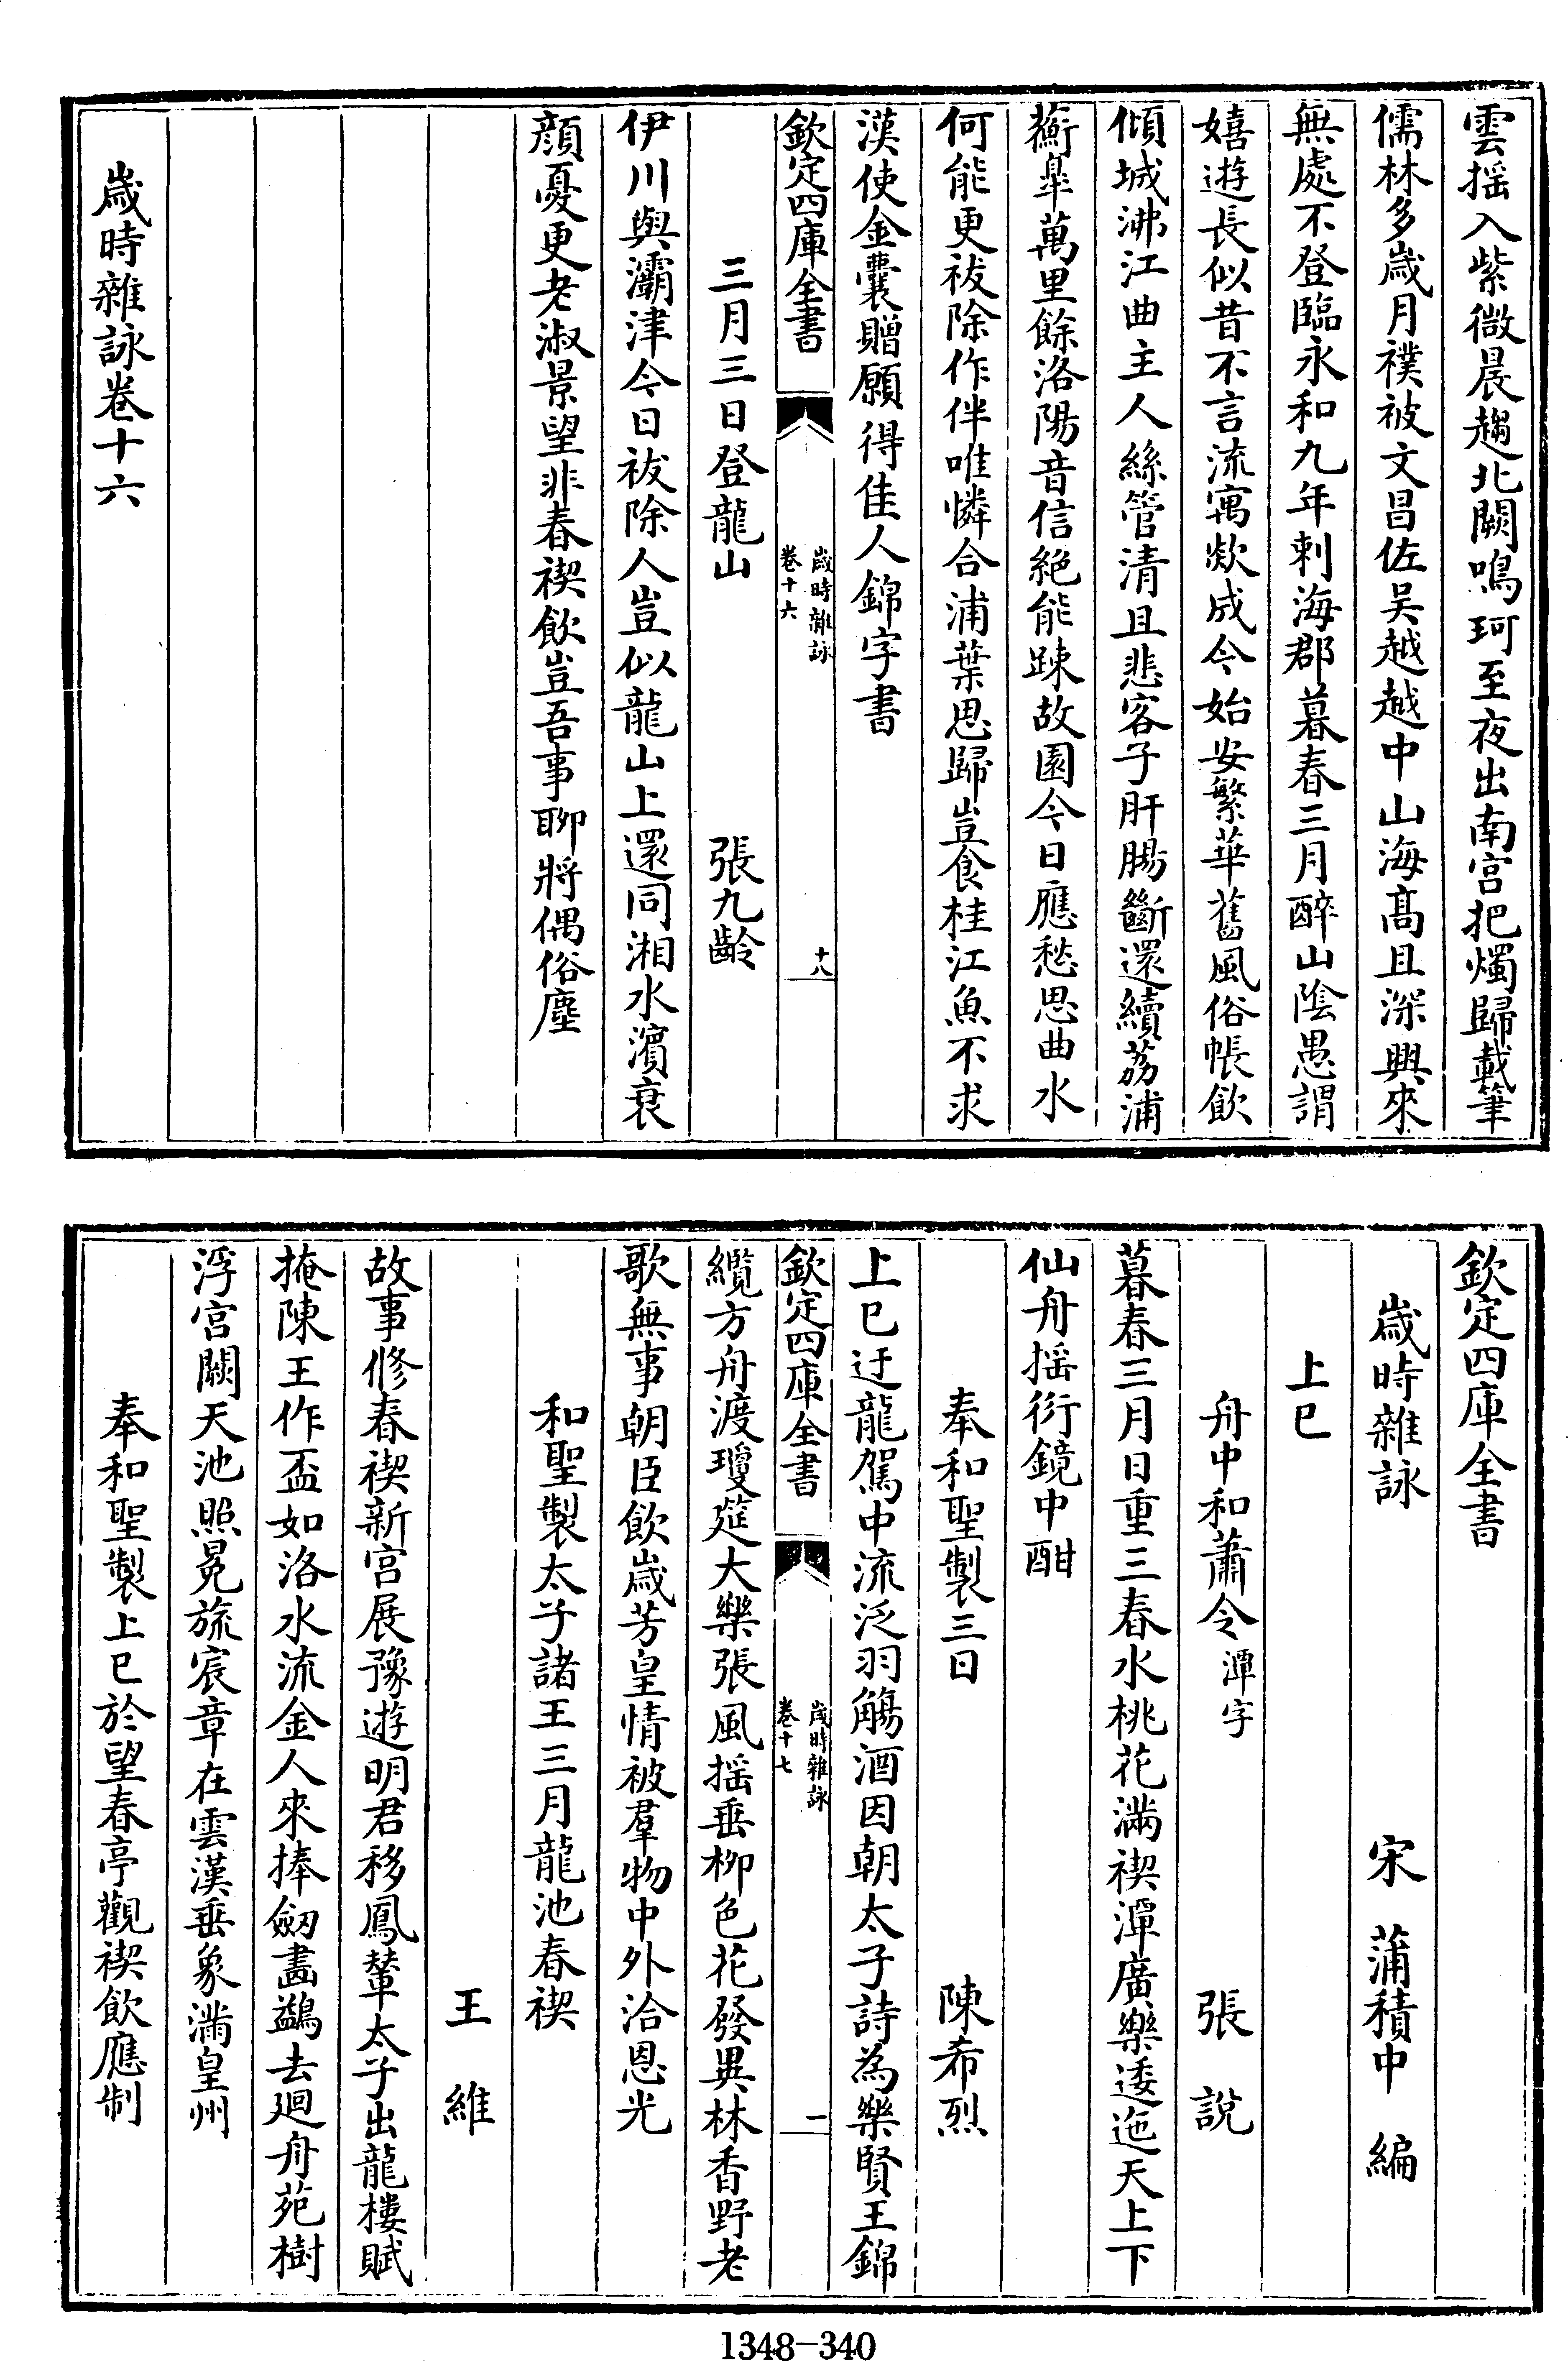 雲搖入紫微晨趨北闕鳴珂至夜出南宫把燭歸載筆
儒林多歲月襆被文昌佐吴越越中山海髙且深興來
無處不登臨永和九年刺海郡暮春三月醉山隂愚謂
嬉遊長似昔不言流寓欻成今始安繁華舊風俗帳飲
傾城沸江曲主人絲管清且悲客子肝腸斷還續荔浦
蘅臯萬里餘洛陽音信絶能踈故園今日應愁思曲水
何能更祓除作伴唯憐合浦葉思歸豈食桂江魚不求
漢使金囊贈願得佳人錦字書
欽定四庫全書
歲時雜詠
卷十六
十八
三月三日登龍山 張九齡
伊川與灞津今日祓除人豈似龍山上還同湘水濱衰
顔憂更老淑景望非春禊飲豈吾事聊將偶俗塵
歲時雜詠卷十六
欽定四庫全書
歲時雜詠 宋 蒲積中 編
上巳
舟中和蕭令潭字 張 說
暮春三月日重三春水桃花滿禊潭廣樂逶迤天上下
仙舟搖衍鏡中酣
奉和聖製三日 陳希烈
上巳迂龍駕中流泛羽觴酒因朝太子詩為樂賢王錦
欽定四庫全書
歲時雜詠
卷十七
一
纜方舟渡瓊筵大樂張風搖垂柳色花發異林香野老
歌無事朝臣飲歲芳皇情被羣物中外洽恩光
和聖製太子諸王三月龍池春禊
王 維
故事修春禊新宫展豫遊明君移鳳輦太子出龍樓賦
掩陳王作盃如洛水流金人來捧劒畵鷁去廻舟苑樹
浮宫闕天池照冕旒宸章在雲漢垂象滿皇州
奉和聖製上巳於望春亭觀禊飲應制
1348-340